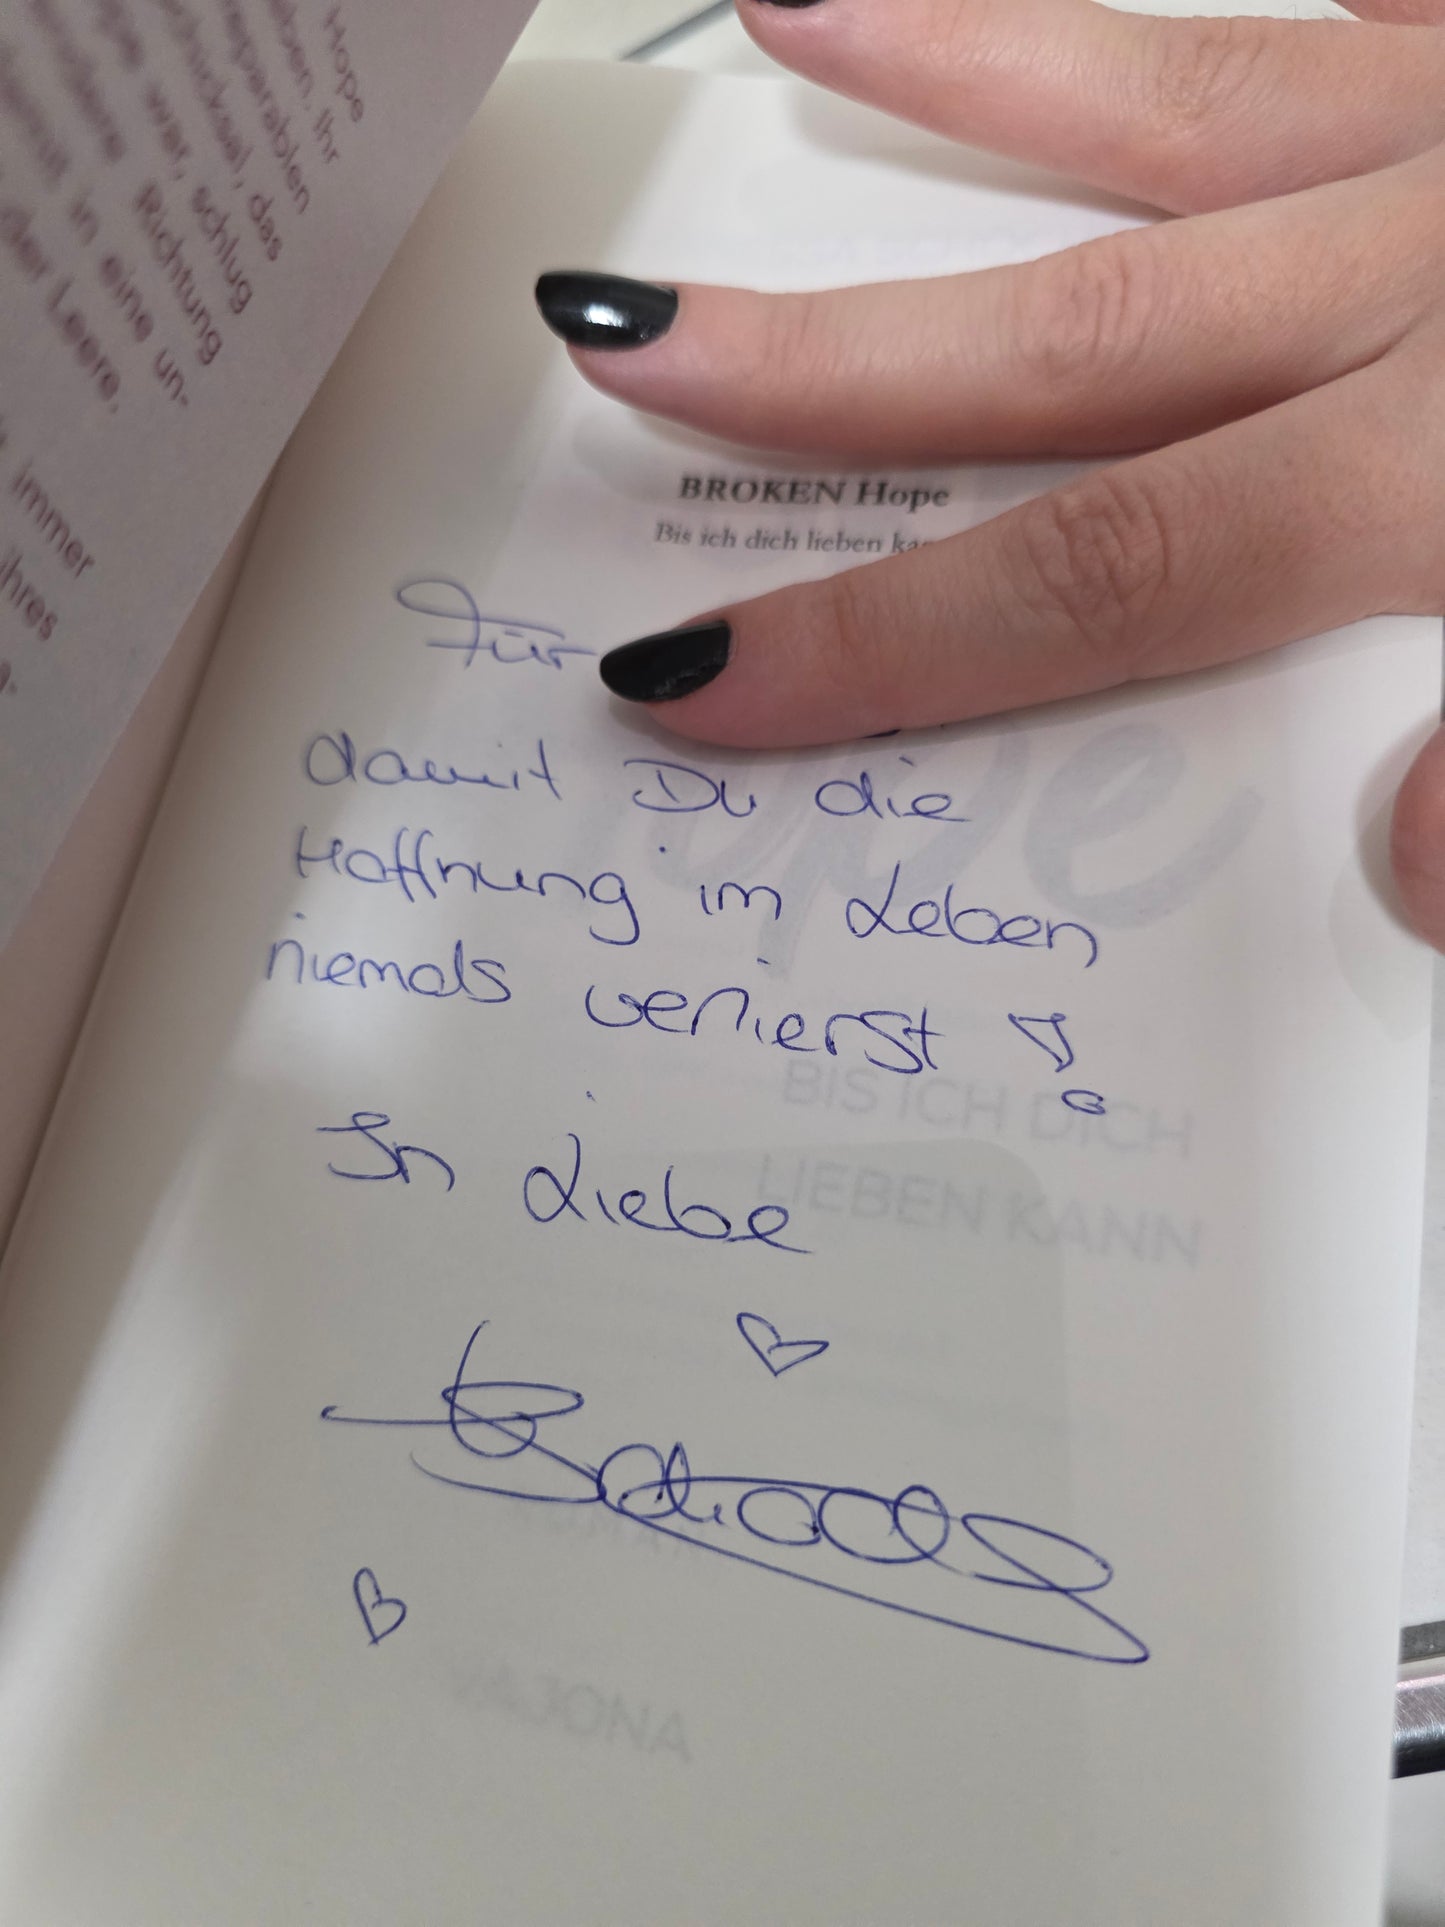 Hope
aben, Ihr
reparablen
chicksal, das
war, schlug
andere Richtung
in eine un-
der Leere,
immer
ihres
BROKEN Hope
Bis ich dich lieben
Für
damit Du die
Hoffnung im Leben
niemals verlierst !
In Liebe
BIS ICH DICH
LIEBEN KANN
VAJONA